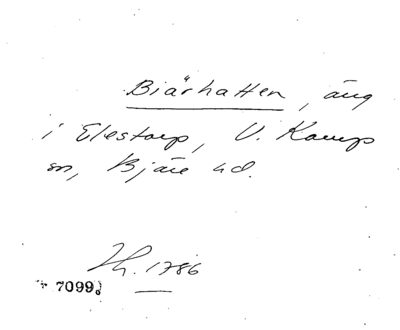 Biärhatten, äng
i Elestorp, V. Karup
sn, Bjäre hd.
Lh. 1786
7099